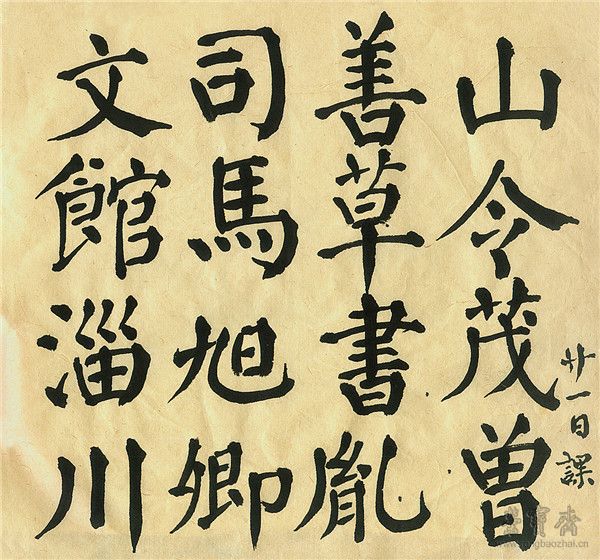 山令茂曾
善草書胤
司馬旭卿
文館淄川
廿一日課
榮寳齋
www.rongbaozhai.cn